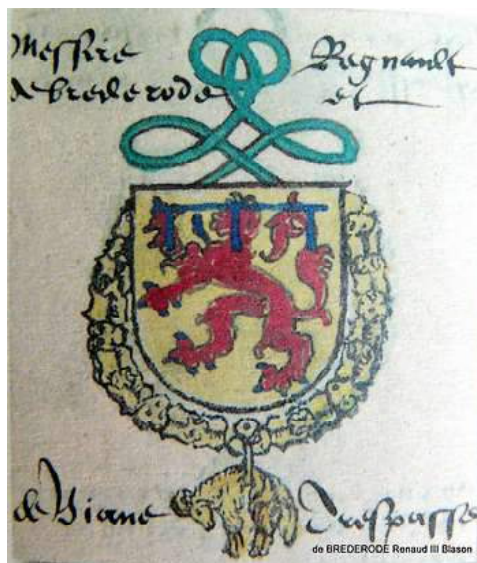 Messire Regnault
de brederode et
de Viane Trespasse
de BREDERODE Renaud III Blason